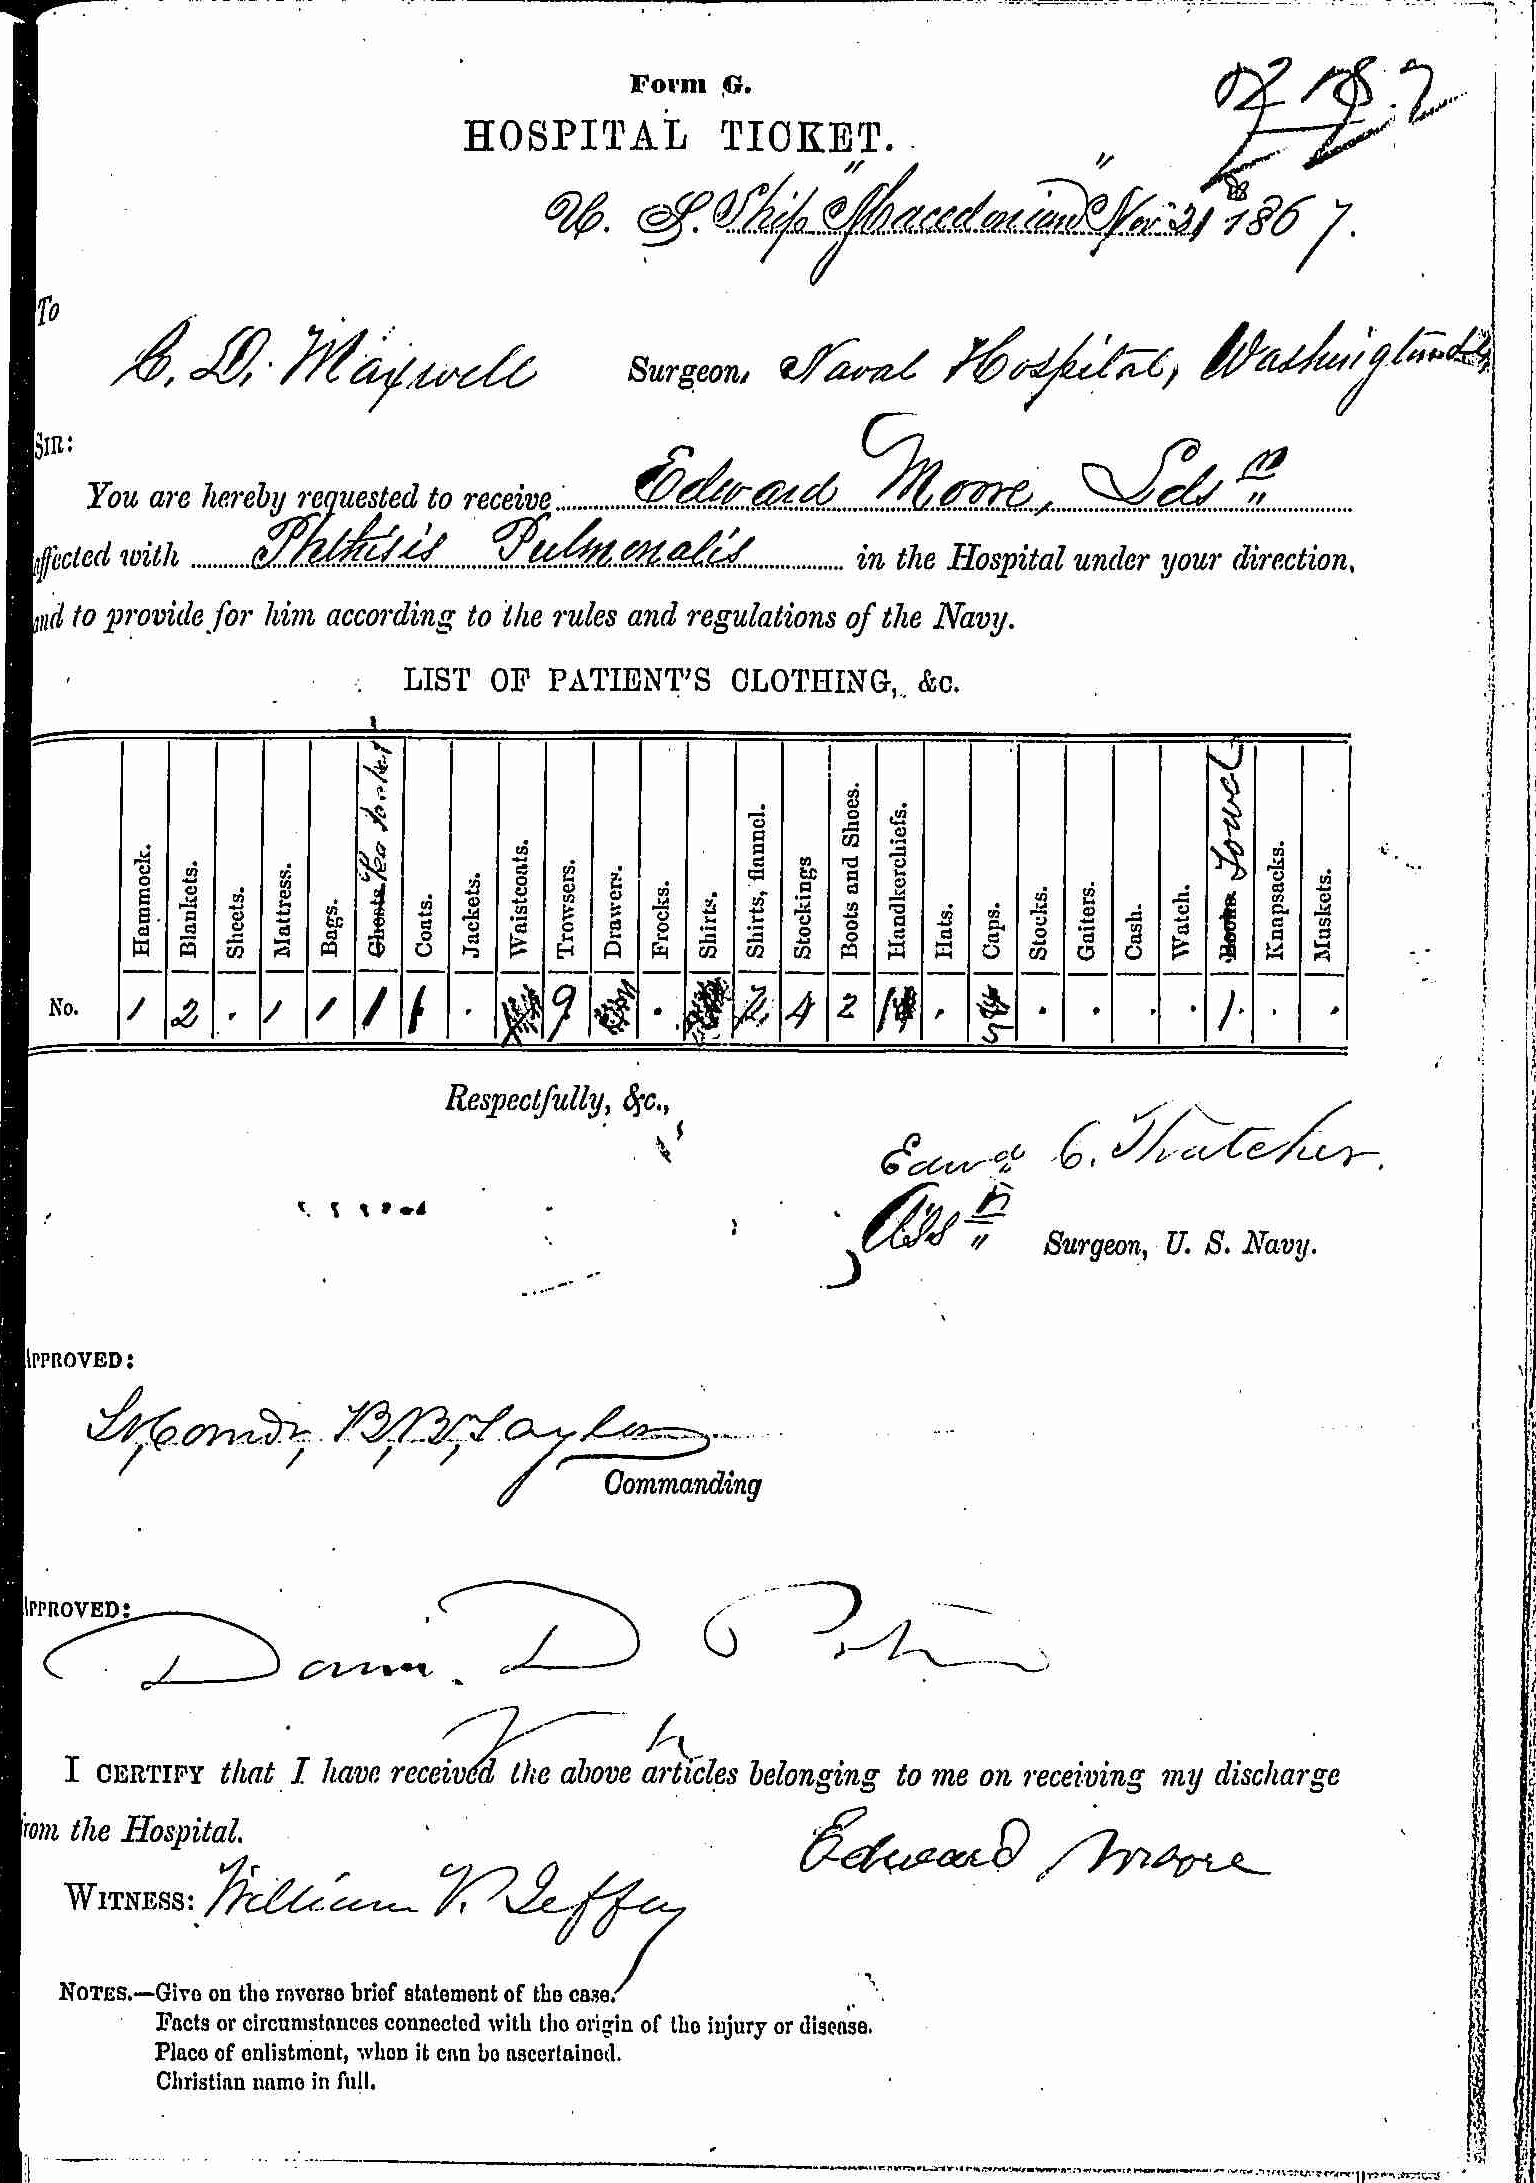 Form G.
HOSPITAL TICKET.
U. S. Ship "Macedonian" Nov 21 1867.
To
C. D. Maxwell Surgeon, Naval Hospital, Washington
SIR:
You are hereby requested to receive Edward Moore, Lds m
affected with Phthisis Pulmonalis in the Hospital under your direction,
and to provide for him according to the rules and regulations of the Navy.
LIST OF PATIENT'S CLOTHING, &c.
Hammock. Blankets. Sheets. Mattress. Bags. Chests. Pea Jacket Coats. Jackets. Waistcoats. Trowsers. Drawers. Frocks. Shirts. Shirts, flannel. Stockings Boots and Shoes. Handkerchiefs. Hats. Caps. Stocks. Gaiters. Cash. Watch. Books. Towel Knapsacks. Muskets.
No. 1 2 . 1 1 1 1 . 9 . 2 4 2 1 . . . . . 1 . .
Respectfully, &c.,
Edwd C. Thatcher.
Ass t Surgeon, U. S. Navy.
APPROVED:
Lt, Comdr, B, B, Taylor
Commanding
APPROVED:
David D Porter
I CERTIFY that I have received the above articles belonging to me on receiving my discharge
from the Hospital.
Edward Moore
WITNESS: William V. Jeffrey
NOTES.—Give on the reverse brief statement of the case.
Facts or circumstances connected with the origin of the injury or disease.
Place of enlistment, when it can be ascertained.
Christian name in full.